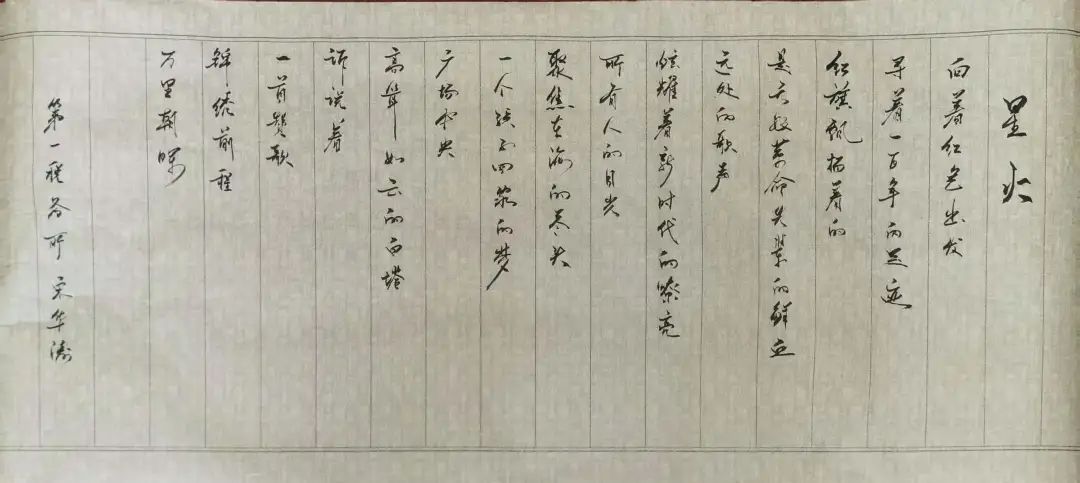 星火
向着红色出发
寻着一百年的足迹
红旗飘扬着的
是无数革命先辈的鲜血
远处的歌声
炫耀着新时代的嘹亮
所有人的目光
聚焦在海的尽头
一个游子回家的梦
广场中央
高耸如云的白塔
诉说着
一首赞歌
锦绣前程
万里朝晖
第一税务所 宋华涛